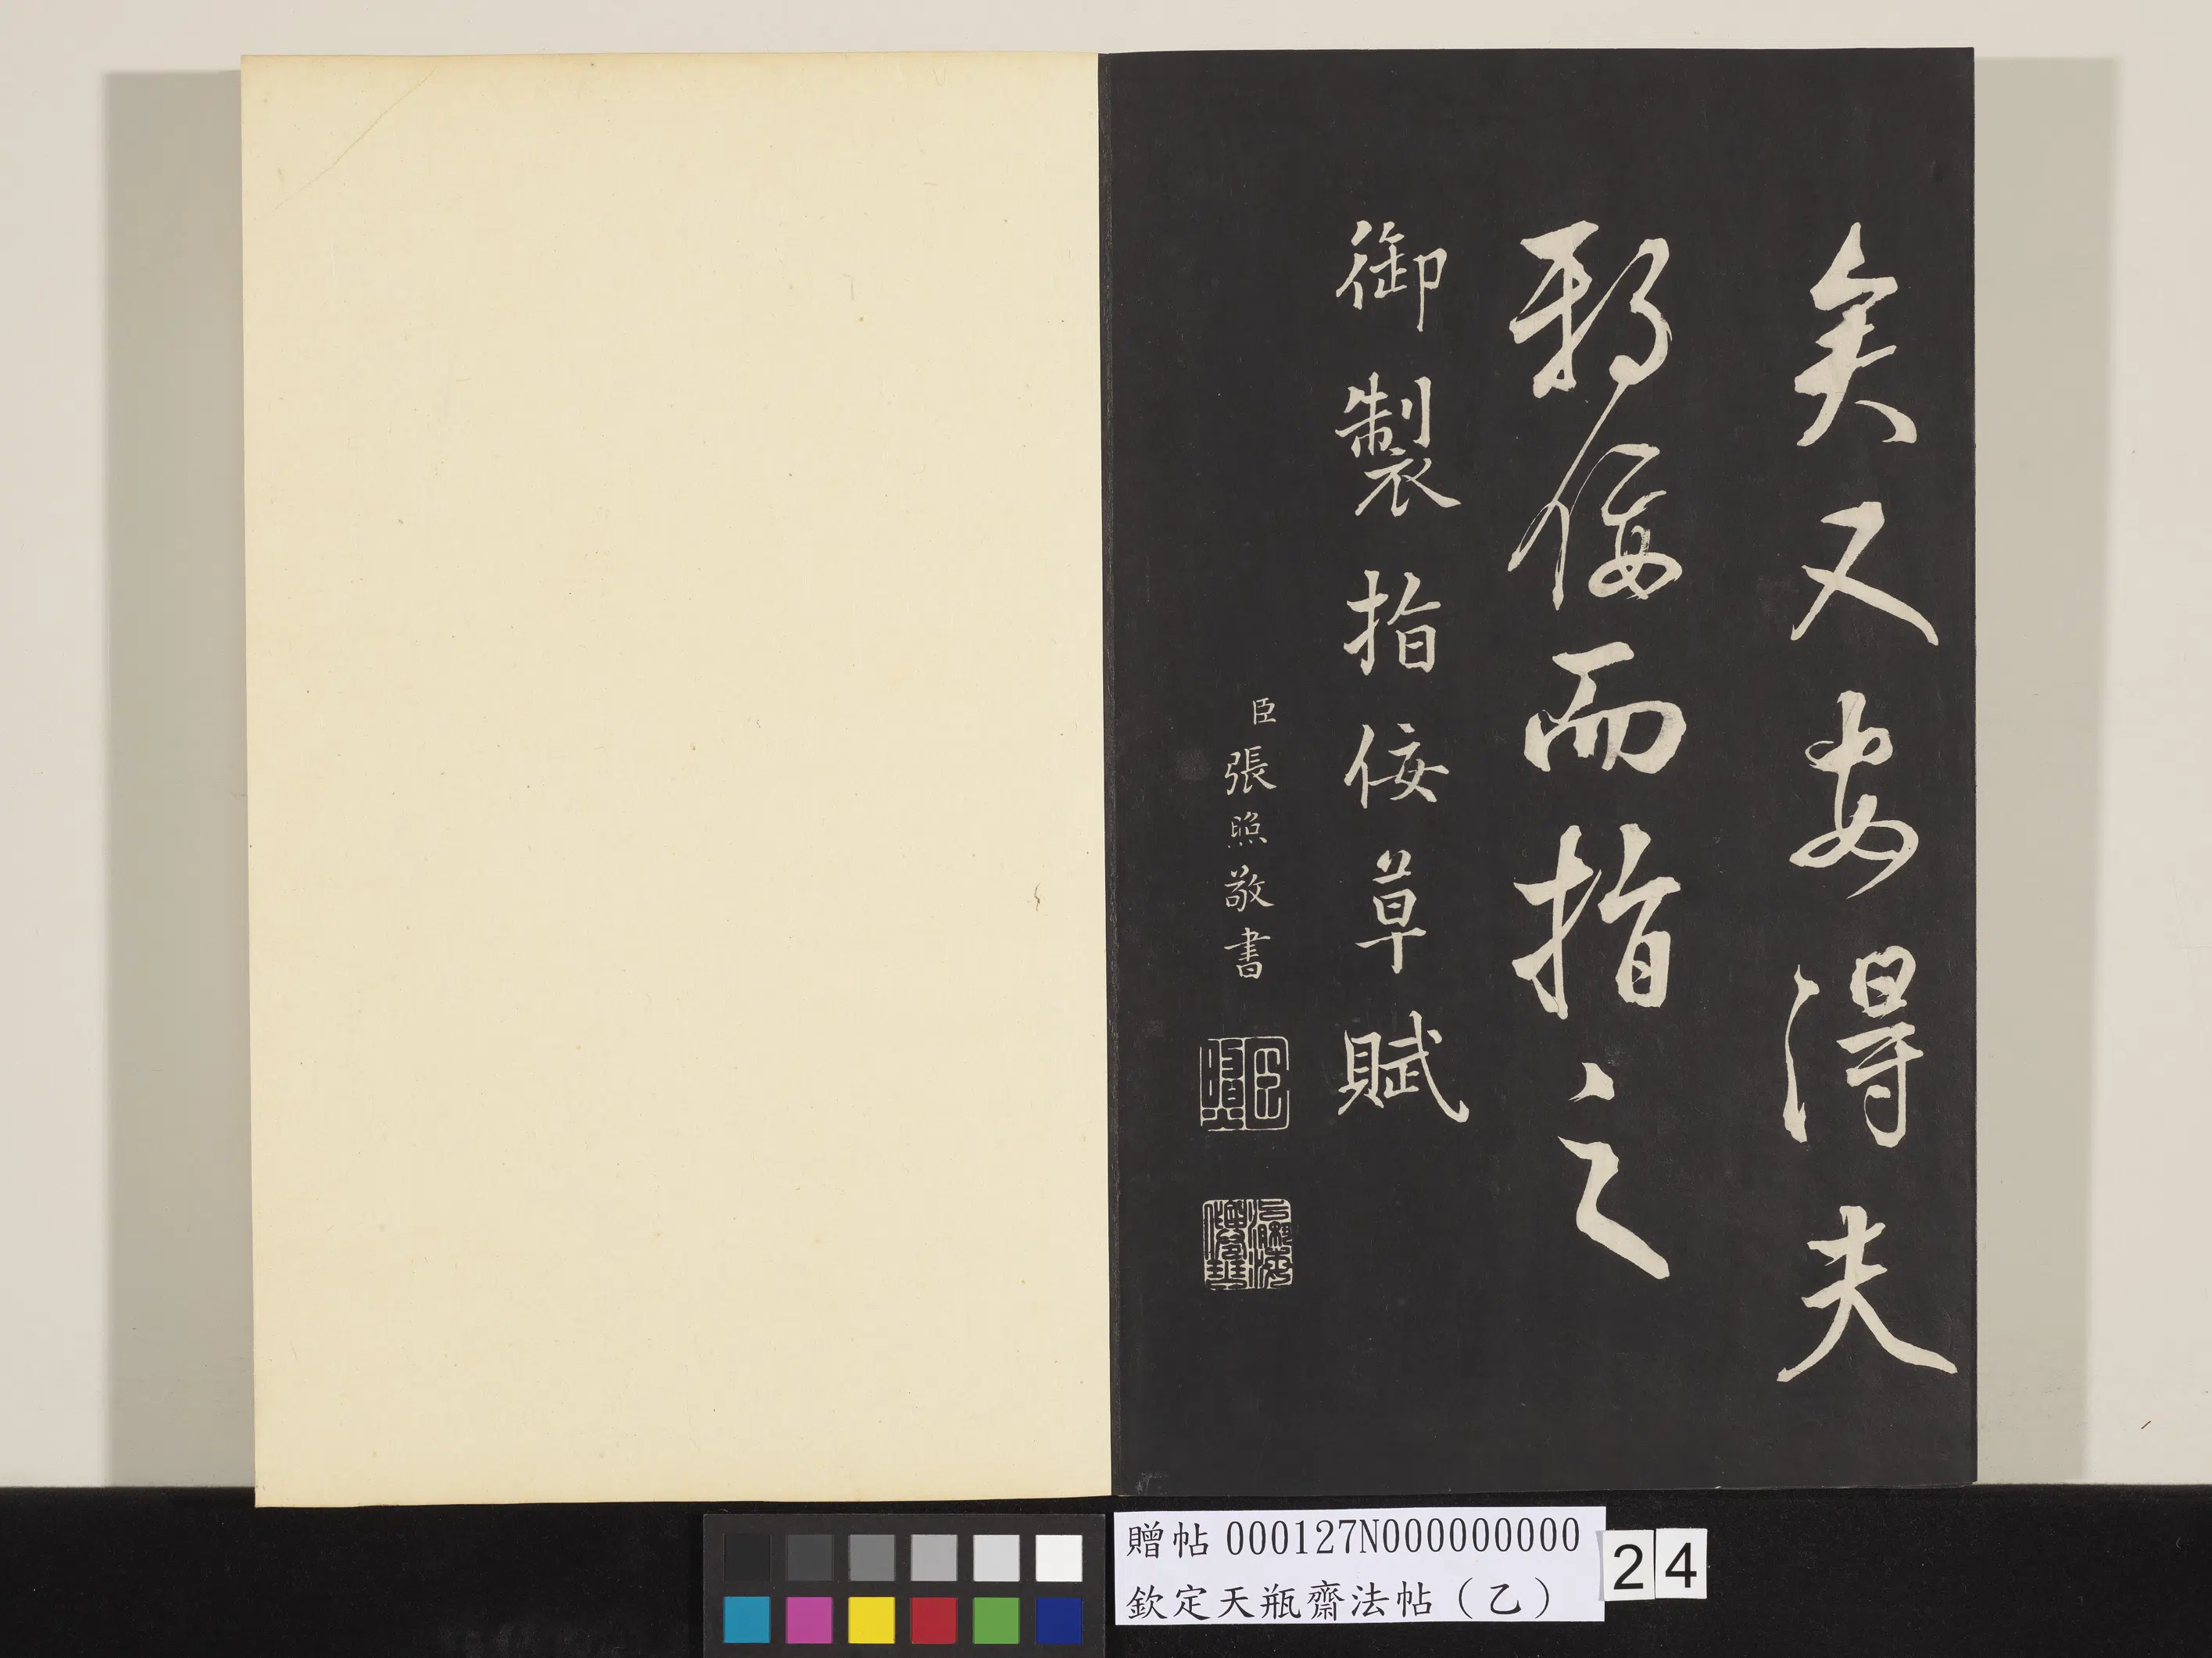 矣又安得夫
邪佞而指之
御製指佞草賦
臣張照敬書
臣照
贈帖 000127N000000000
欽定天瓶齋法帖（乙）
24